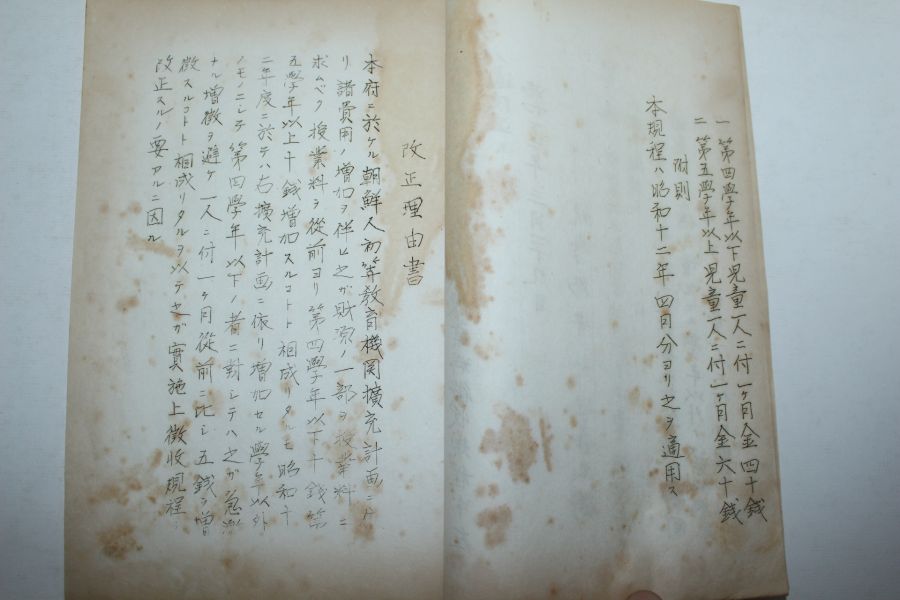 一 第四學年以下児童一人ニ付一ヶ月金四十銭
二 第五學年以上児童一人ニ付一ヶ月金六十銭
附則
本規程ハ昭和十二年四月分ヨリ之ヲ適用ス
改正理由書
本府ニ於ケル朝鮮人初等教育機関擴充計画ニ
リ諸費用ノ増加ヲ伴ヒ之ガ財源ノ一部ヲ授業料ニ
求ムベク授業料ヲ從前ヨリ第四學年以下十銭第
五學年以上十銭増加スルコトト相成リタルモ昭和十
二年度ニ於テハ右擴充計画ニ依リ増加セル學年以外
ノモノニシテ第四學年以下ノ者ニ對シテハ之ガ急激
ナル増徴ヲ避ケ一人ニ付一ヶ月從前ニ比シ五銭ヲ増
徴スルコトト相成リタルヲ以テ之ガ實施上徴収規程
改正スルノ要アルニ因ル